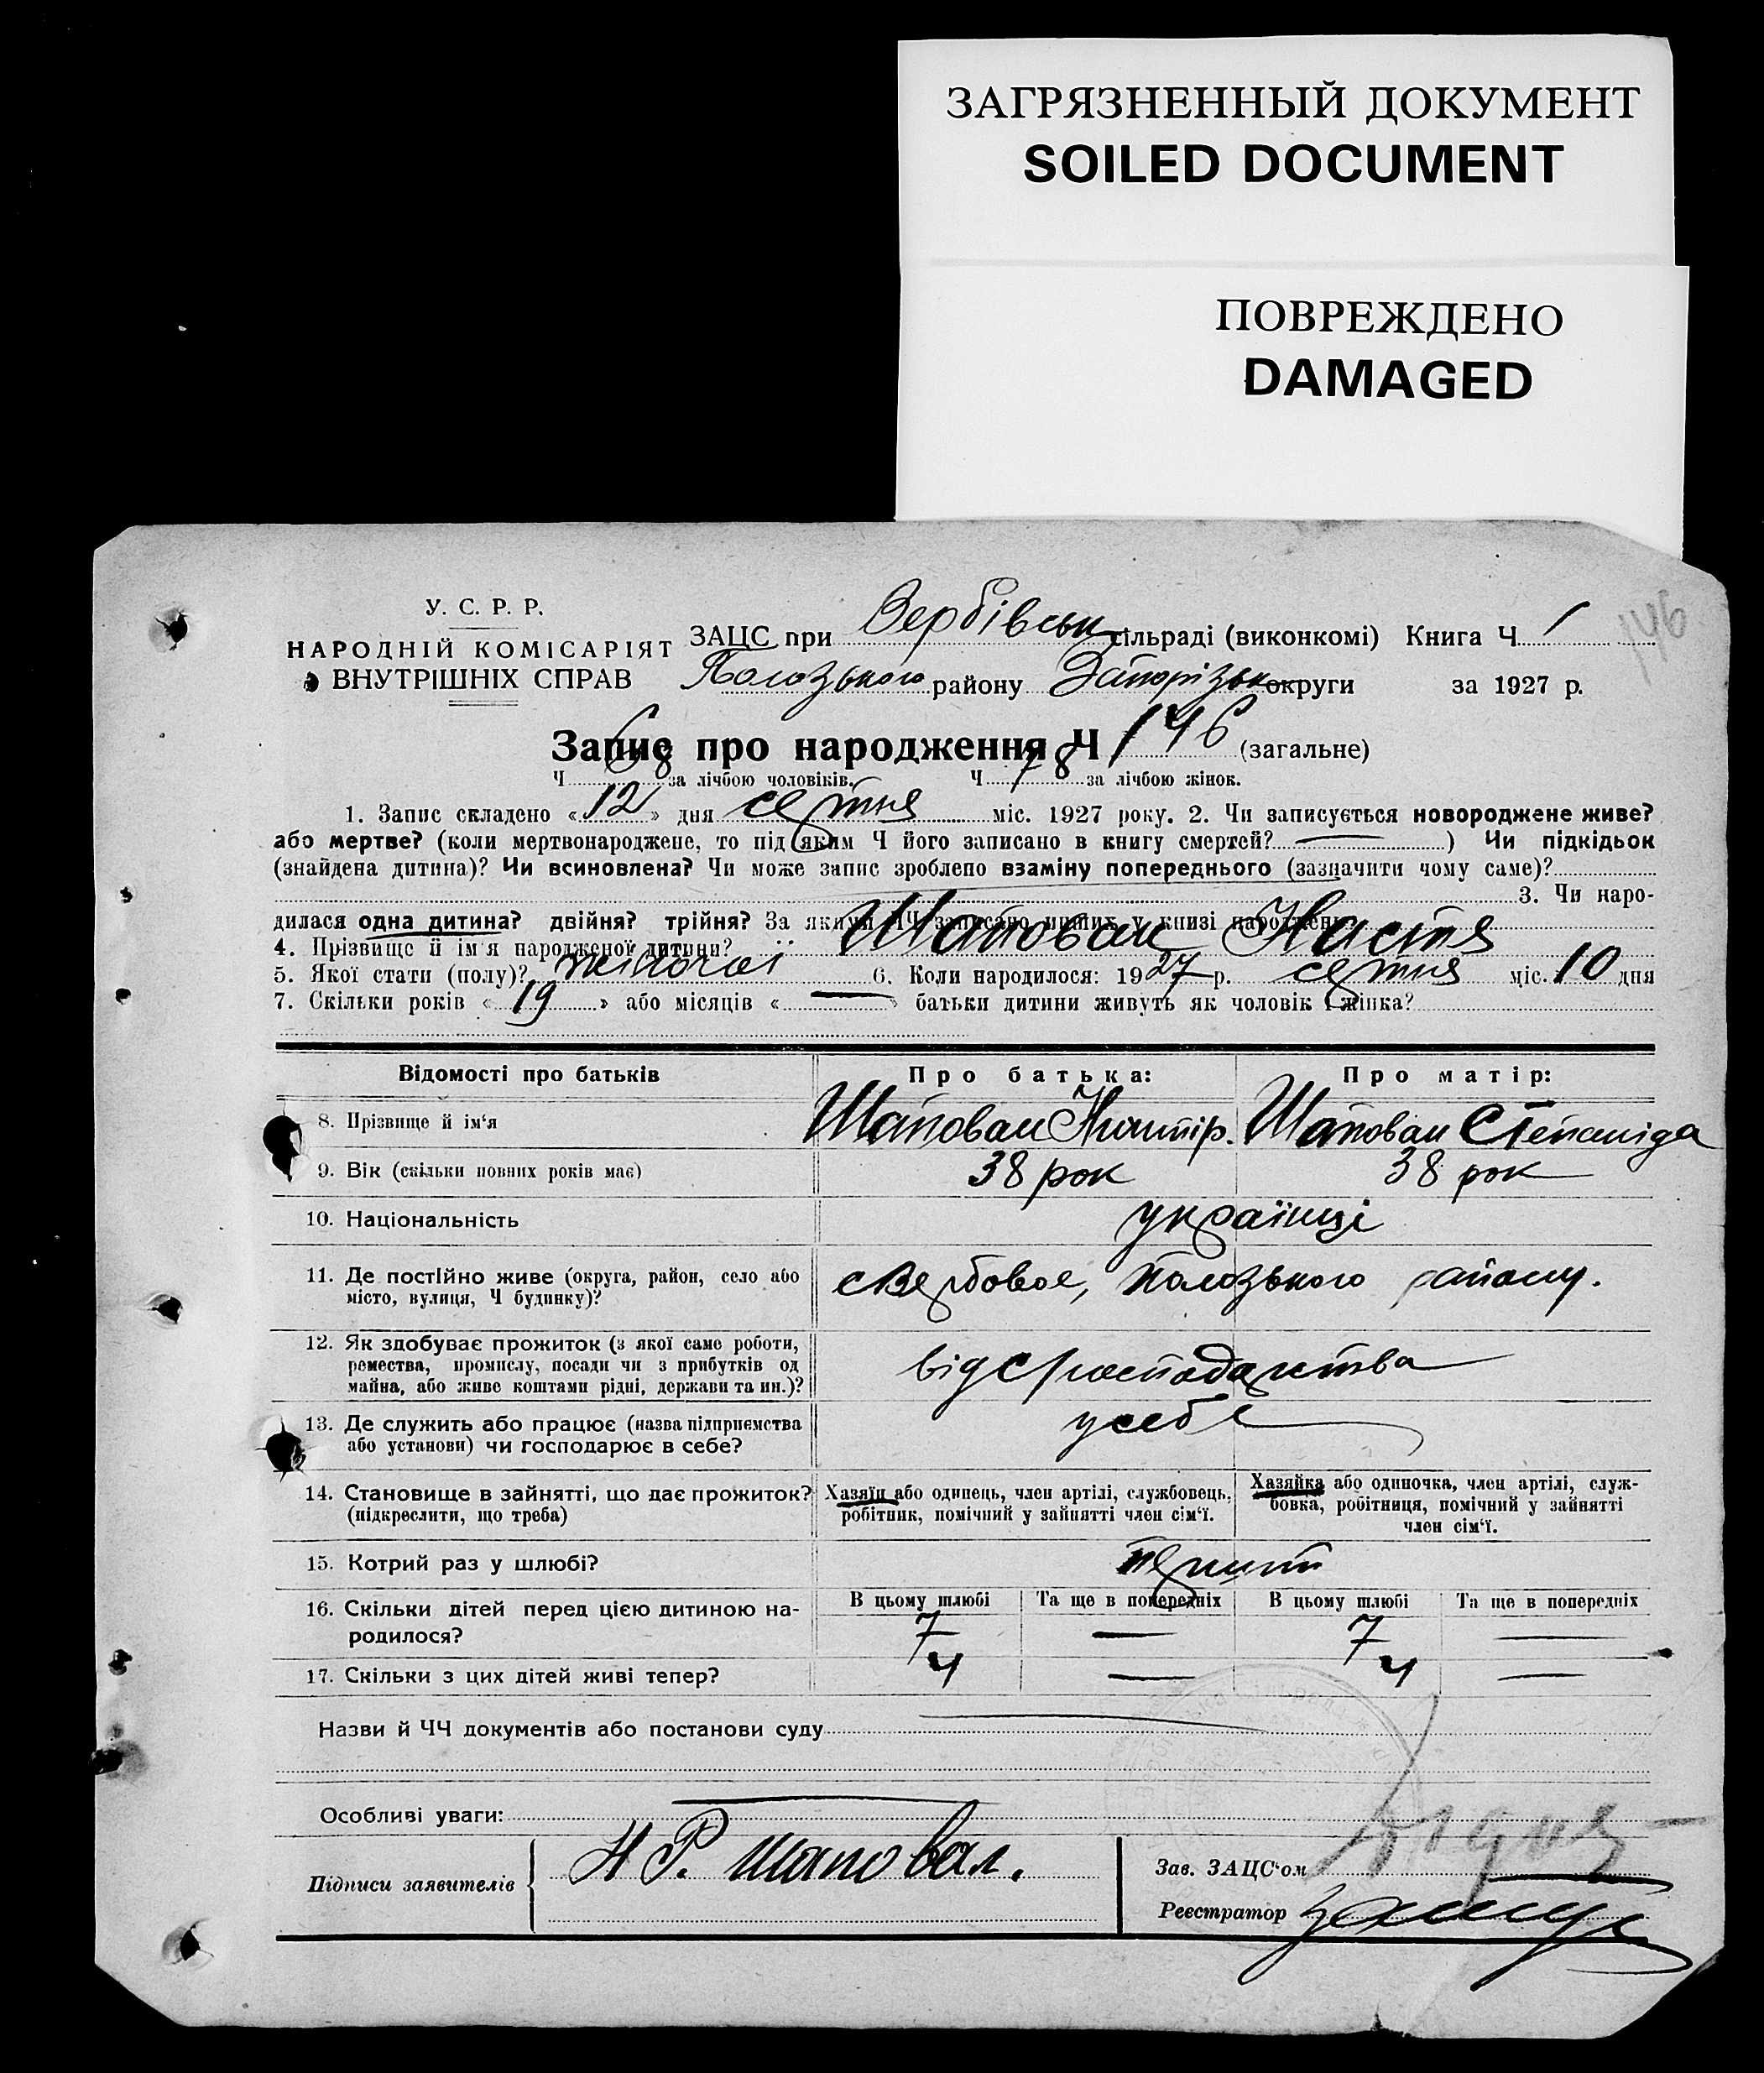 ЗАГРЯЗНЕННЫЙ ДОКУМЕНТ
SOILED DOCUMENT
ПОВРЕЖДЕНО
DAMAGED
146
У. С. Р. Р.
НАРОДНІЙ КОМІСАРІЯТ
ВНУТРІШНІХ СПРАВ
ЗАЦС при Вербівськ сільраді (виконкомі) Книга Ч 1
Полозького району Запорізьк округи за 1927 р.
Запис про народження Ч 146 (загальне)
Ч 68 за лічбою чоловіків. Ч 78 за лічбою жінок.
1. Запис складено «12» дня серпня міс. 1927 року. 2. Чи записується новороджене живе?
або мертве? (коли мертвонароджене, то під яким Ч його записано в книгу смертей? —) Чи підкідьок
(знайдена дитина)? Чи всиновлена? Чи може запис зроблено взаміну попереднього (зазначити чому саме)?
3. Чи наро-
дилася одна дитина? двійня? трійня? За якими ЧЧ записано инших у книзі народжень
4. Прізвище й ім'я народженої дитини? Шаповал Настя
5. Якої стати (полу)? жіночої 6. Коли народилося: 1927 р. серпня міс. 10 дня
7. Скільки років «19» або місяців «—» батьки дитини живуть як чоловік і жінка?
Відомості про батьків Про батька: Про матір:
8. Прізвище й ім'я Шаповал Шаповал Степанида
9. Вік (скільки повних років має) 38 рок 38 рок
10. Національність українці
11. Де постійно живе (округа, район, село або
місто, вулиця, Ч будинку)? с Вербовое, Полозького району.
12. Як здобуває прожиток (з якої саме роботи,
ремества, промислу, посади чи з прибутків од
майна, або живе коштами рідні, держави та ин.)? від с господарства
13. Де служить або працює (назва підприемства
або установи) чи господарює в себе? у себе
14. Становище в зайнятті, що дає прожиток?
(підкреслити, що треба)
Хазяїн або одинець, член артілі, службовець,
робітник, помічний у зайнятті член сім'ї.
Хазяйка або одиночка, член артілі, служ-
бовка, робітниця, помічний у зайнятті
член сім'ї.
15. Котрий раз у шлюбі?
16. Скільки дітей перед цією дитиною на-
родилося?
В цьому шлюбі Та ще в попередніх В цьому шлюбі Та ще в попередніх
7 — 7 —
17. Скільки з цих дітей живі тепер? 4 — 4 —
Назви й ЧЧ документів або постанови суду
Особливі уваги:
Підписи заявителів Н Р. Шаповал.
Зав. ЗАЦС'ом
Реєстратор